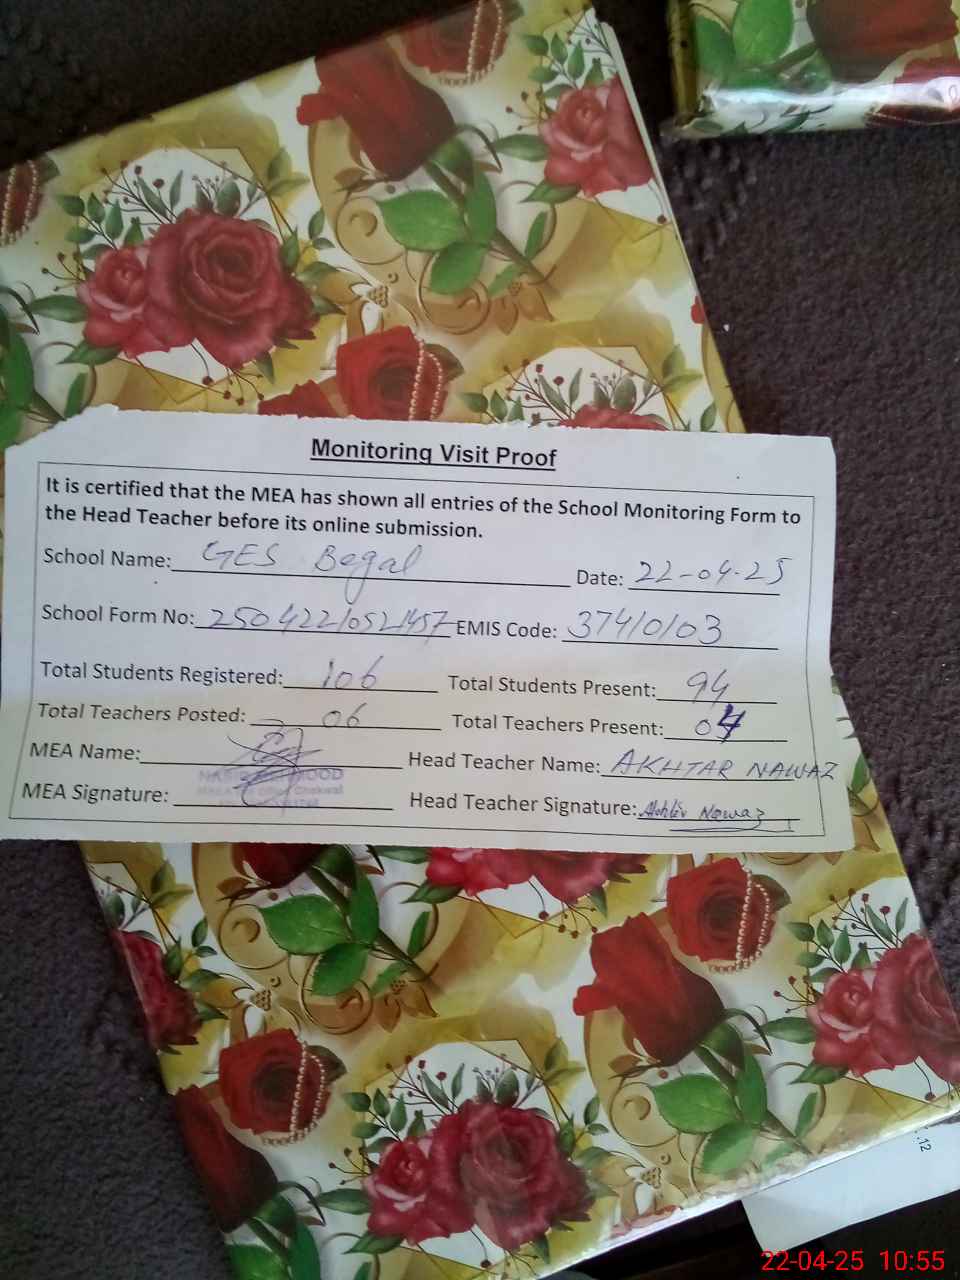 Monitoring Visit Proof
It is certified that the MEA has shown all entries of the School Monitoring Form to
the Head Teacher before its online submission.
School Name: GES Begal Date: 22-04-25
School Form No: EMIS Code: 37410103
Total Students Registered: 106 Total Students Present: 94
Total Teachers Posted: 06 Total Teachers Present: 04
MEA Name: Head Teacher Name: AKHTAR NAWAZ
MEA Signature: Head Teacher Signature: Akhtar Nawaz
.12
22-04-25 10:55